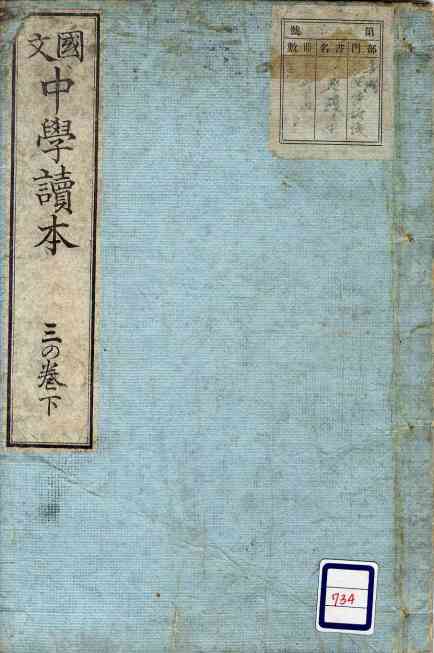 國文
中學讀本
三の巻下
第 號
部門書名冊數
734